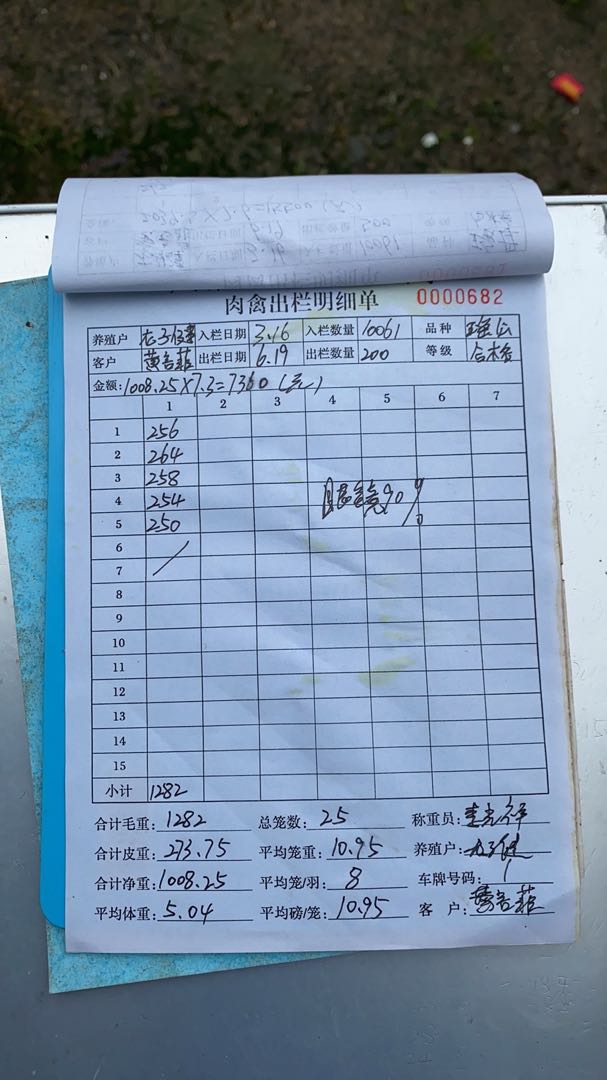 肉禽出栏明细单 0000682
养殖户 入栏日期 3.16 入栏数量 10061 品种
客户 黄吉菲 出栏日期 6.19 出栏数量 200 等级 合格
金额:1008.25×7.3=7360(元)
1 2 3 4 5 6 7
1 256
2 264
3 258
4 254 眼镜90%
5 250
6
7
8
9
10
11
12
13
14
15
小计 1282
合计毛重:1282 总笼数:25 称重员:
合计皮重:273.75 平均笼重:10.95 养殖户:
合计净重:1008.25 平均笼/羽:8 车牌号码:
平均体重:5.04 平均磅/笼:10.95 客 户:黄吉菲